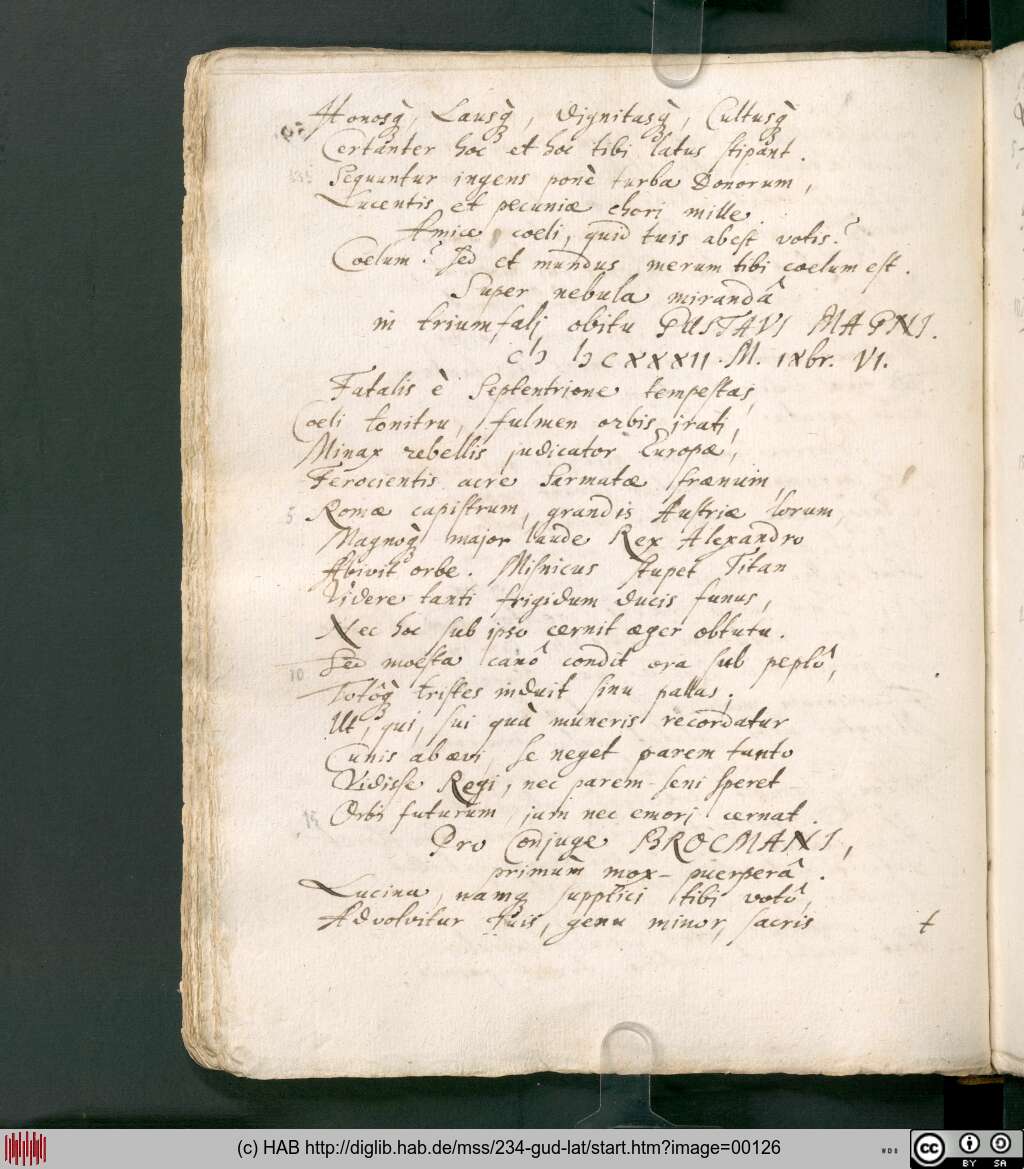 Honosq̀, Lausq̀, Dignitasq̀, Cultusq̀
Certanter hoc et hoc tibi latus stipant.
135 Sequuntur ingens ponè turba Donorum,
Lucentis et pecuniæ chori mille.
Amice coeli, quid tuis abest votis?
Coelum? Sed et mundus merum tibi coelum est.
Super nebula mirandâ
in triumfalj obitu GUSTAVI MAGNI.
cIɔ Iɔ CXXXII. M. IXbr. VI.
Fatalis è Septentrione tempestas,
Coeli tonitru, fulmen orbis irati,
Minax rebellis judicator Europæ,
Ferocientis acre Sarmatæ frænum,
5 Romæ capistrum, grandis Austriæ lorum,
Magnoq̀ major laude Rex Alexandro
Abivit orbe. Misnicus stupet Titan
Videre tanti frigidum ducis funus,
Nec hoc sub ipso cernit æger obtutu.
10 Sed moesta canô condit ora sub peplô,
Totôq̀ tristes induit sinu pallas;
Ut, qui, sui quà muneris recordatur
Cunis ab ævi, se neget parem tanto
Vidisse Regi, nec parem seni speret
15 Orbi futurum, jam nec emorj cernat.
Pro Conjuge BROCMANI,
primùm mox-puerperâ.
Lucina, namq supplici tibi votô,
Advolvitur tuis, genu minor, sacris
t
(c) HAB http://diglib.hab.de/mss/234-gud-lat/start.htm?image=00126
cc BY SA